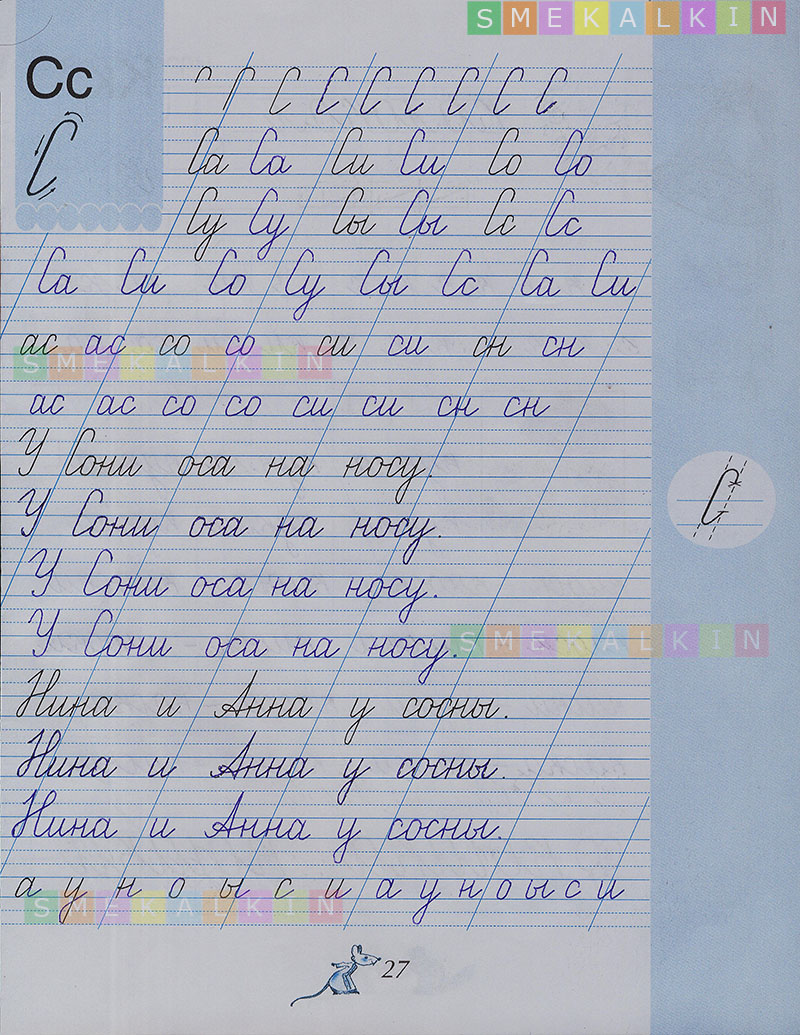 SMEKALKIN
Сс
С С С С С С С
Са Са Си Си Со Со
Су Су Сы Сы Сс Сс
Са Си Со Су Сы Сс Са Си
ас ас со со си си сн сн
SMEKALKIN
ас ас со со си си сн сн
У Сони оса на носу.
У Сони оса на носу.
У Сони оса на носу.
У Сони оса на носу.
SMEKALKIN
Нина и Анна у сосны.
Нина и Анна у сосны.
Нина и Анна у сосны.
а у н о ы с и а у н о ы с и
SMEKALKIN
27